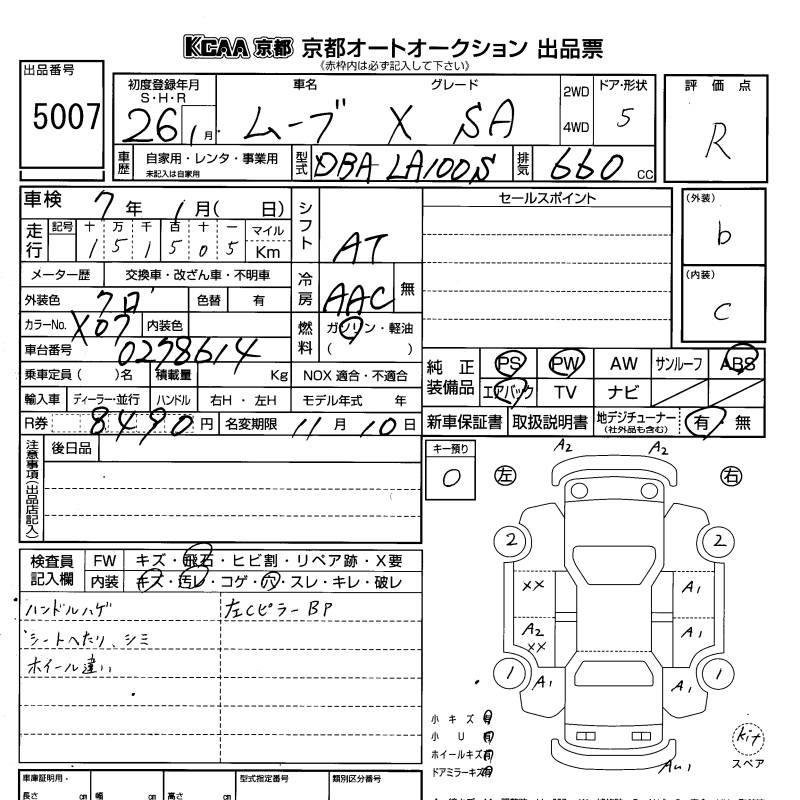 KCAA 京都 京都オートオークション 出品票
《赤枠内は必ず記入して下さい》
出品番号
5007
初度登録年月 車名 グレード 2WD ドア・形状
S・H・R
26 1月 ムーブ X SA 4WD 5
評価点
R
車歴 自家用・レンタ・事業用 型式 DBA LA100S 排気 660 CC
未記入は自家用
車検 7年 1月( 日) シフト AT
セールスポイント
(外装)
b
(内装)
C
走行 記号 十 万 千 百 十 一 マイル
1 5 1 5 0 5 Km
メーター歴 交換車・改ざん車・不明車 冷房 AAC 無
外装色 クロ 色替 有
カラーNo. X07 内装色 燃料 ガソリン・軽油
( )
車台番号 0278614
乗車定員( )名 積載量 Kg NOX 適合・不適合
輸入車 ディーラー・並行 ハンドル 右H・左H モデル年式 年
R券 8490円 名変期限 11月10日
純正装備品 PS PW AW サンルーフ ABS
エアバック TV ナビ
新車保証書 取扱説明書 地デジチューナー 有・無
(社外品も含む)
注意事項(出品店記入) 後日品
キー預り
0
左 右
A2 A2
2 2
XX A1
A2 A1
XX
1 1
A1 A1
AU1
検査員記入欄 FW キズ・飛石・ヒビ割・リペア跡・X要
内装 キズ・汚レ・コゲ・穴・スレ・キレ・破レ
ハンドルハゲ 左CピラーBP
シートへたり、シミ
ホイール違い
小キズ有
小U有
ホイールキズ有
ドアミラーキズ有
kit
スペア
車庫証明用・ 型式指定番号 類別区分番号
長さ cm 幅 cm 高さ cm